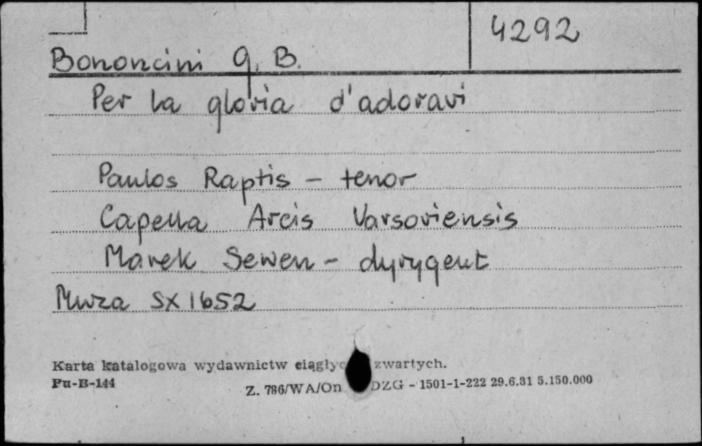 4292
Bononcini G. B.
Per la gloria d'adoravi
Paulos Raptis - tenor
Capella Arcis Varsoviensis
Marek Sewen - dyrygent
Muza SX 1652
Karta katalogowa wydawnictw ciągłyc zwartych.
Pu-B-144
Z. 786/WA/On DZG - 1501-1-222 29.6.81 5.150.000